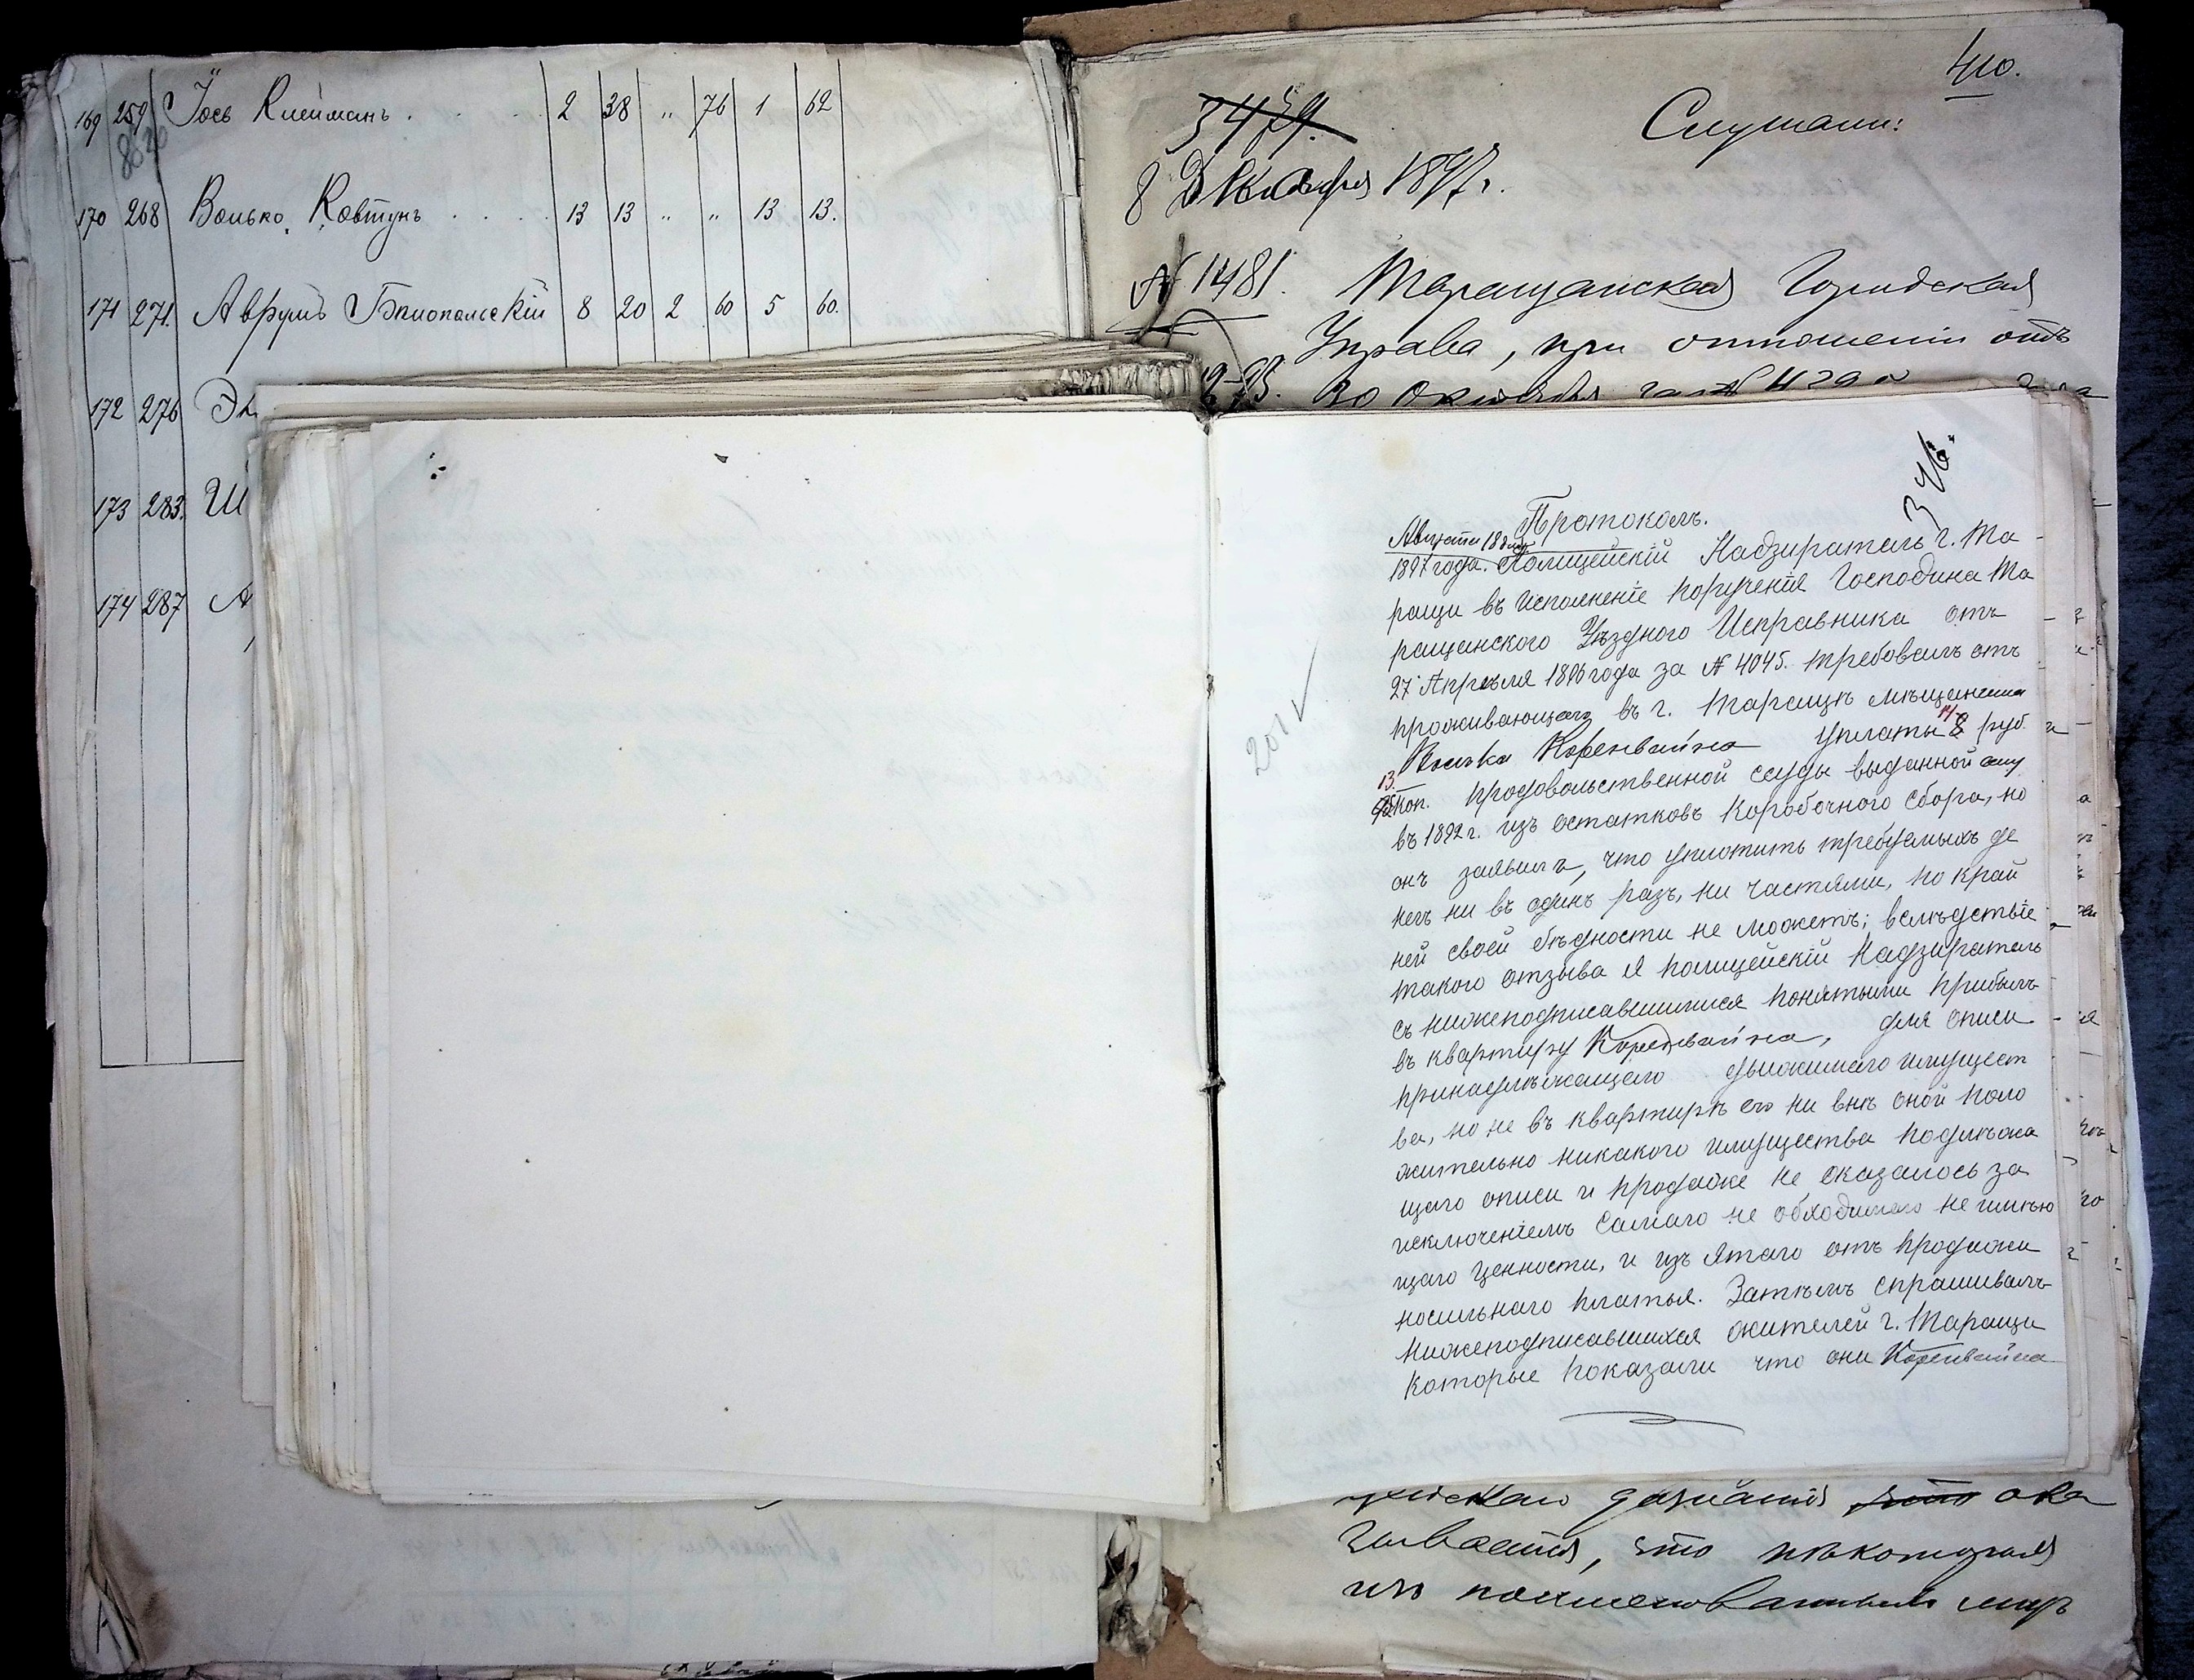 169 259 Іось Клейманъ . . . . 2 38 " 76 1 62
170 268 Волько Ковтунъ . . . . 13 13 " " 13 13.
171 271. Аврумъ Бялопольскій 8 20 2 60 5 60.
172 276
173 283. Ш
174 287 А
410.
3479.
Слушали:
8 Декабря 1897 г.
N 1481. Таращанская Городская
Управа, при отношеніи отъ
30 Октября
346.
Протоколъ.
Августа 18 дня
1897 года. Полицейскій Надзиратель г. Та
ращи въ исполненіе порученія Господина Та
ращанского Уѣздного Исправника отъ
27 Апрѣля 1896 года за N 4045. требовалъ отъ
проживающаго въ г. Таращѣ мѣщанина
Волька Коренвайна уплаты руб.
13. коп. продовольственной ссуды выданной ему
въ 1892 г. изъ остатковъ Коробочного сбора, но
онъ заявилъ, что уплотить требуемыхъ де
негъ ни въ одинъ разъ, ни частями, по край
ней своей бѣдности не можетъ; вслѣдствіе
такого отзыва я полицейскій Надзиратель
съ нижеподписавшимися понятыми прибылъ
въ квартиру Коренвайна, для описи
принадлѣжащаго движимаго имущест
ва, но не въ квартирѣ его ни внѣ оной поло
жительно никакого имущества подлѣжа
щаго описи и продаже не оказалось за
исключеніемъ самаго не обходимаго не имѣю
щаго ценности, и изъ ятаго отъ продажи
носильнаго платья. Затѣмъ спрашивалъ
нижеподписавшихся жителей г. Таращи
которые показали что они Коренвайна
201 ✓
дознанія ока
зывается, что нѣкоторыя
изъ поименованныхъ лицъ